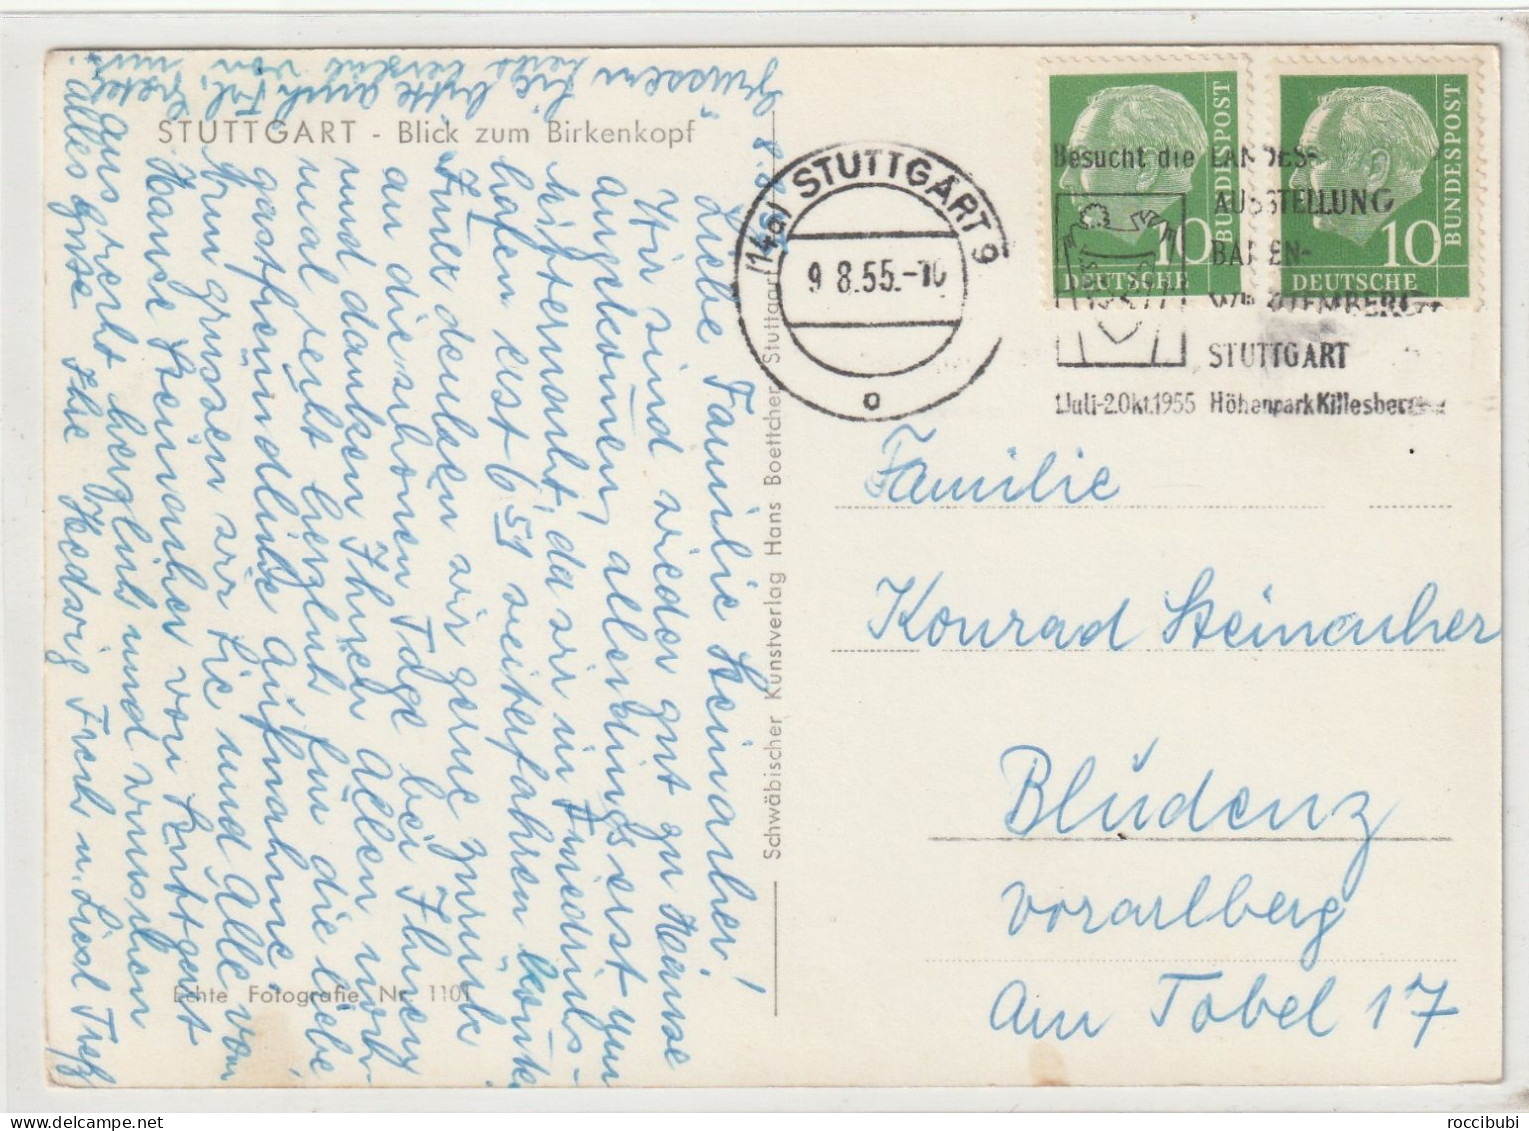 STUTTGART - Blick zum Birkenkopf
8.8.55
Liebe Familie Steinacher!
Wir sind wieder gut zu Hause
angekomen, allerdings erst um
Mitternacht, da wir in Friedrichs-
hafen erst 6 51 weiterfahren konte
Imer denken wir gerne zurück
an die schonen Tage bei Ihnen
und danken Ihnen Allen noch-
mal recht herzlich fur die liebe
gastfreundliche Aufnahme.
Nun grussen wir Sie und Alle vom
Hause Steinacher von
aus recht herzlich und wunschen
alles gute Ihre Hedwig Fisch u. Liesl
Grüssen Sie bitte auch Frl.
herzl von mir.
Echte Fotografie Nr. 1101
Schwäbischer Kunstverlag Hans Boettcher Stuttgart
(14a) STUTTGART 9
9.8.55.-10
o
Besucht die LANDES-
AUSSTELLUNG
BADEN-
WÜRTTEMBERG
STUTTGART
1.Juli-2.Okt.1955 Höhenpark Killesberg
10
DEUTSCHE
BUNDESPOST
10
DEUTSCHE
BUNDESPOST
Familie
Konrad Steinacher
Bludenz
Vorarlberg
Am Tobel 17
roccibubi